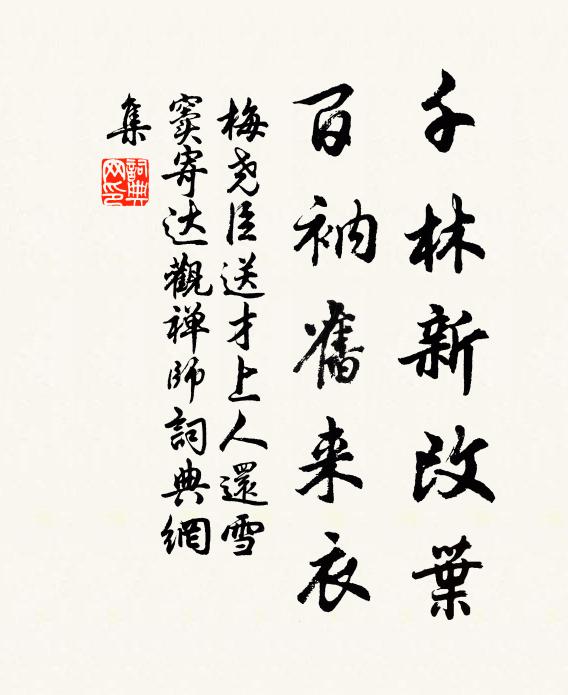 千林新改葉
百衲舊来衣
梅尧臣送才上人還雪
竇寄达觀禅師詞典網
集
詞典
网印